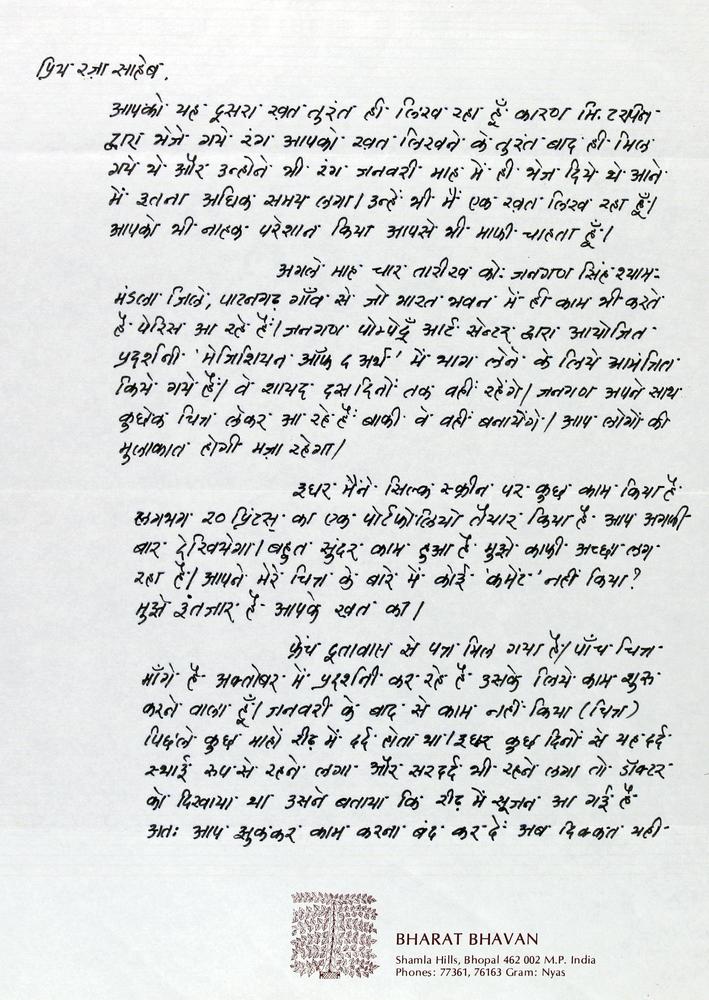 प्रिय रज़ा साहेब,
आपको यह दूसरा खत तुरंत ही लिख रहा हूँ कारण मि. टरपिन
द्वारा भेजे गये रंग आपको खत लिखने के तुरंत बाद ही मिल
गये थे और उन्होंने भी रंग जनवरी माह में ही भेज दिये थे आने
में इतना अधिक समय लगा। उन्हें भी मैं एक खत लिख रहा हूँ।
आपको भी नाहक परेशान किया आपसे भी माफी चाहता हूँ।
अगले माह चार तारीख को जनगण सिंह श्याम
मंडला जिले, पाटनगढ़ गाँव से जो भारत भवन में ही काम भी करते
है पेरिस आ रहे हैं। जनगण पोम्पेदूँ आर्ट सेन्टर द्वारा आयोजित
प्रदर्शनी 'मेजिशियन ऑफ द अर्थ' में भाग लेने के लिये आमंत्रित
किये गये हैं। वे शायद दस दिनों तक वहीं रहेंगे। जनगण अपने साथ
कुछेक चित्र लेकर आ रहे हैं बाकी वे वहीं बनायेंगे। आप लोगों की
मुलाकात होगी मज़ा रहेगा।
इधर मैंने सिल्क स्क्रीन पर कुछ काम किया है
लगभग २० प्रिंटस् का एक पोर्टफोलियो तैयार किया है आप अगली
बार देखियेगा। बहुत सुंदर काम हुआ है मुझे काफी अच्छा लग
रहा है। आपने मेरे चित्र के बारे में कोई 'कमेंट' नहीं किया?
मुझे इंतजार है आपके खत का।
फ्रेंच दूतावास से पत्र मिल गया है। पाँच चित्र
माँगे है अक्तोबर में प्रदर्शनी कर रहे है उसके लिये काम शुरू
करने वाला हूँ। जनवरी के बाद से काम नहीं किया (चित्र)
पिछले कुछ माहों रीढ़ में दर्द होता था। इधर कुछ दिनों से यह दर्द
स्थाई रूप से रहने लगा और सरदर्द भी रहने लगा तो डॉक्टर
को दिखाया था उसने बताया कि रीढ़ में सूजन आ गई है
अतः आप झुककर काम करना बंद कर दें अब दिक्कत यही
BHARAT BHAVAN
Shamla Hills, Bhopal 462 002 M.P. India
Phones: 77361, 76163 Gram: Nyas